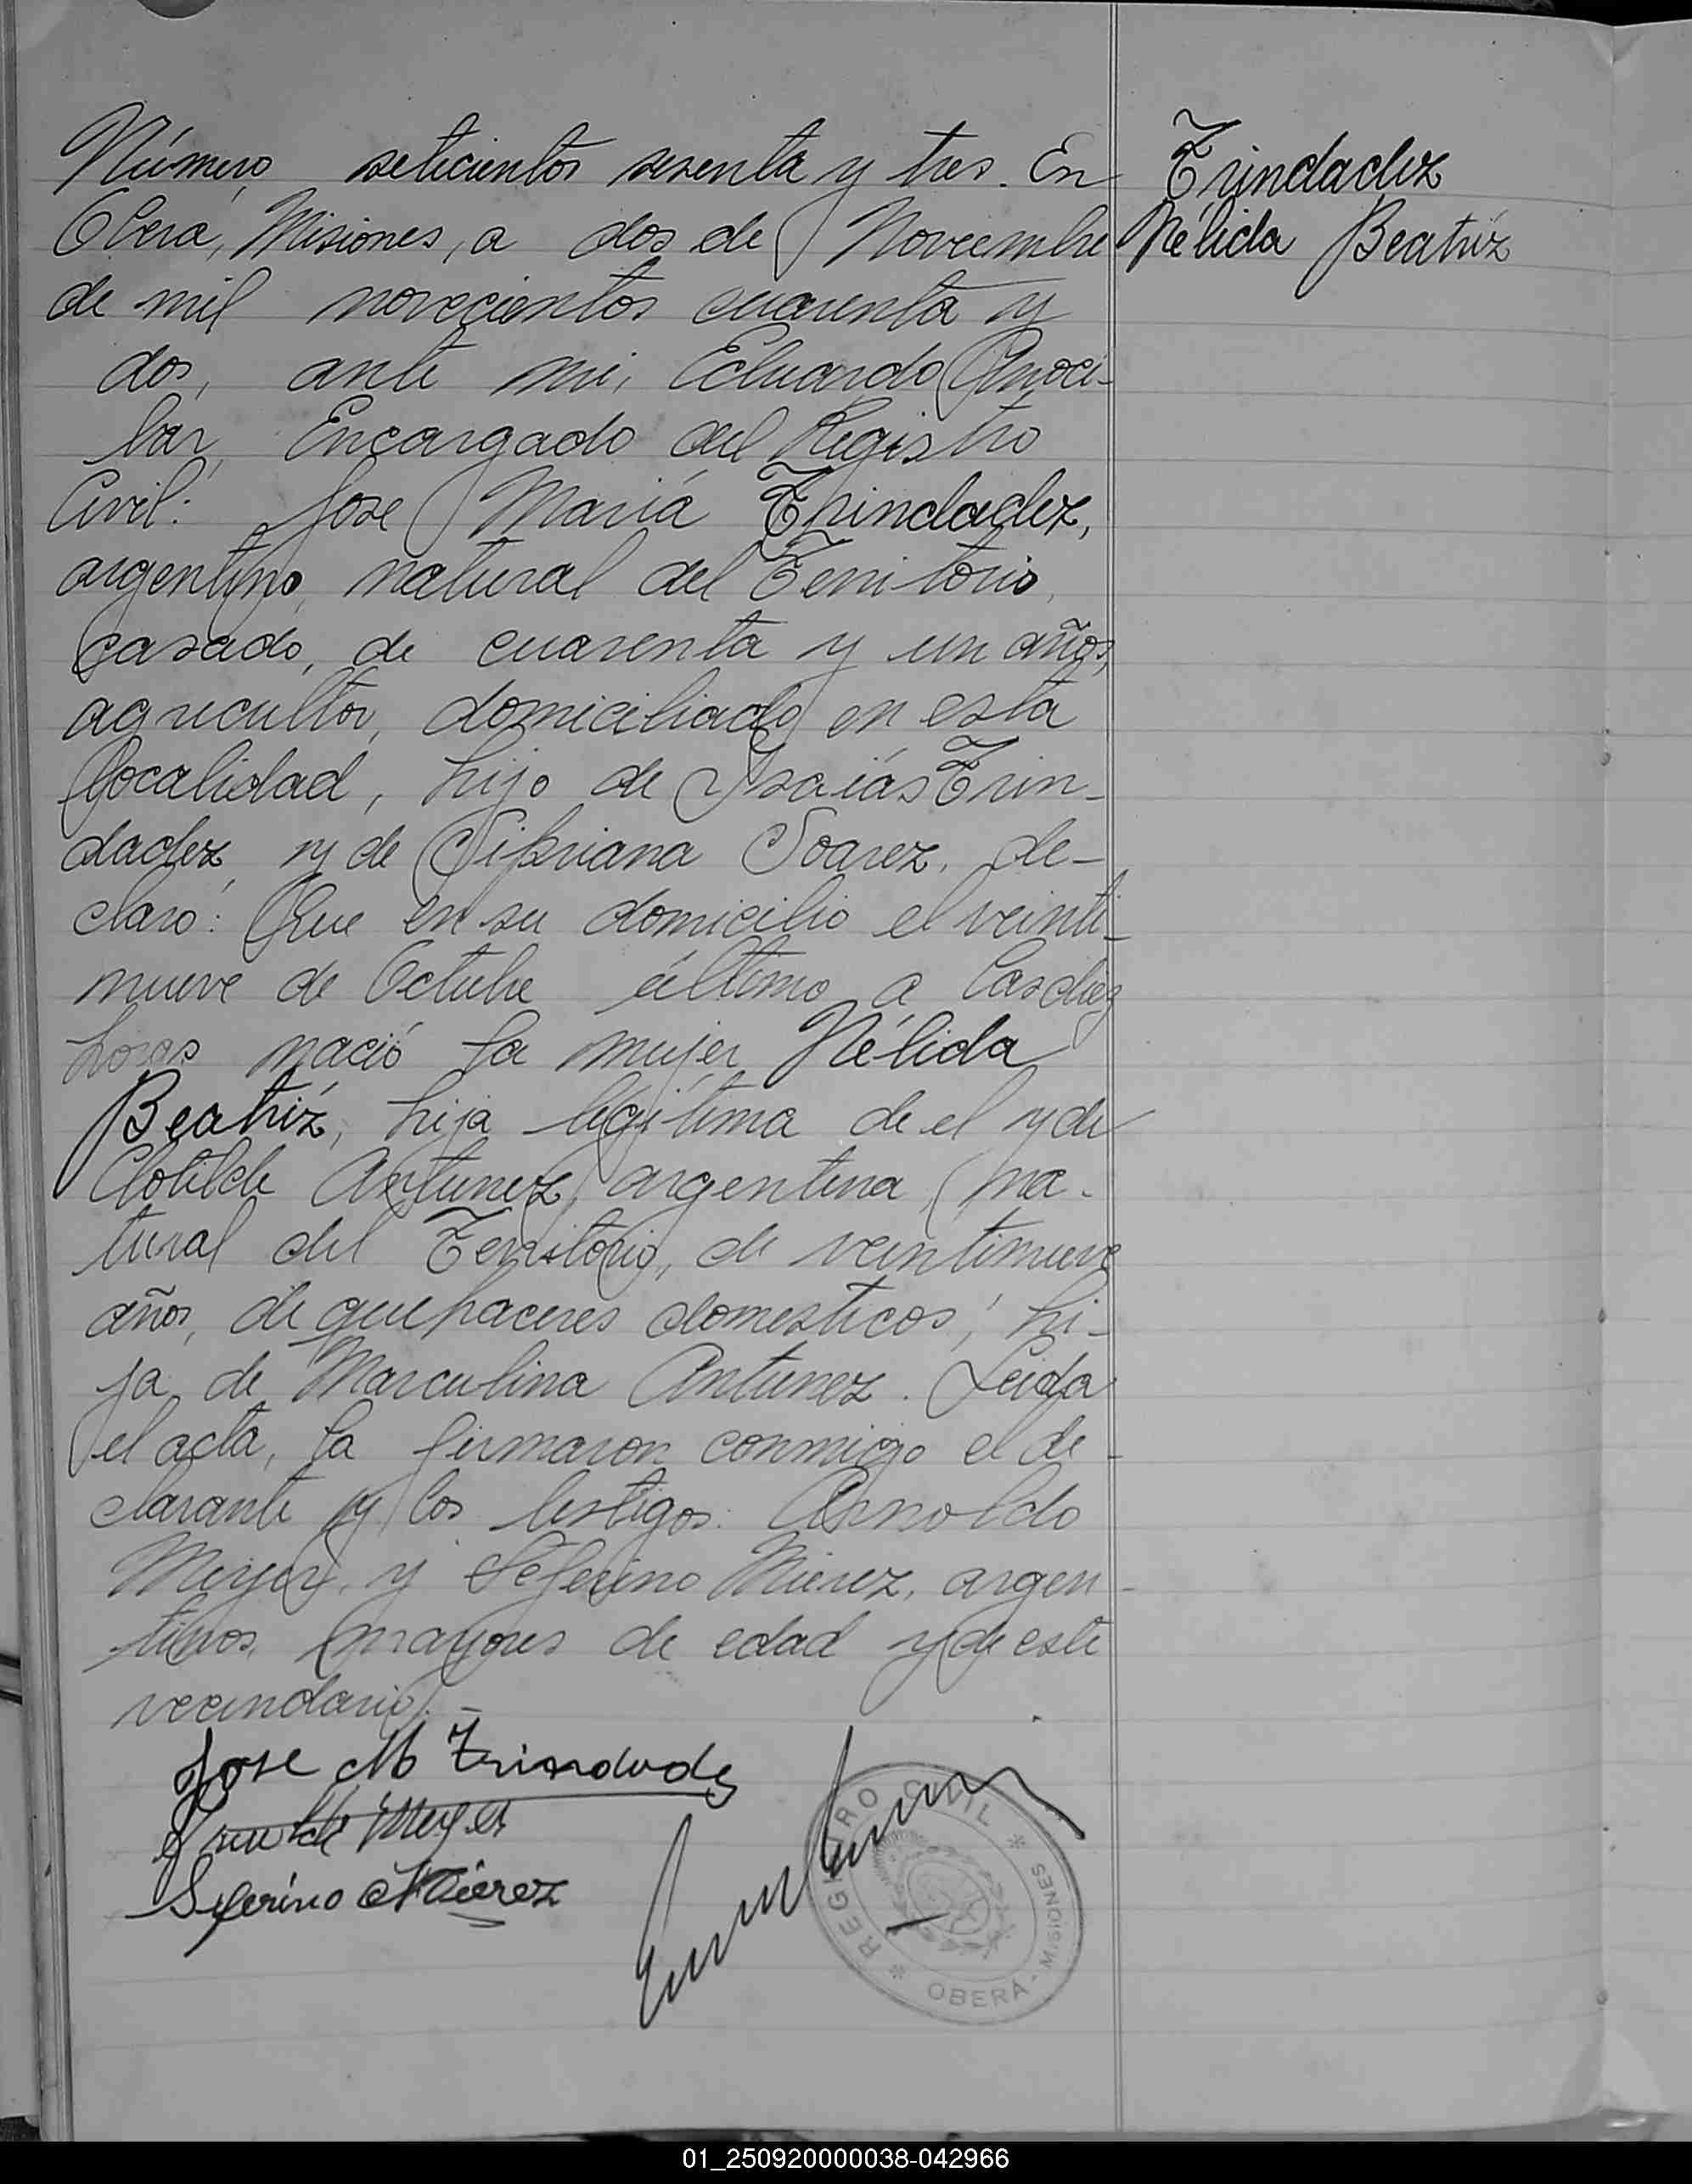 Número setecientos sesenta y tres. En
Obera, Misiones, a dos de Noviembre
de mil novecientos cuarenta y
dos, ante mi, Eduardo Amoci-
bar, Encargado del Registro
Civil: Jose María Trindadez,
argentino, natural del Territorio,
casado, de cuarenta y un años,
agricultor, domiciliado en esta
localidad, hijo de Isaías Trin-
dadez, y de Sipriana Soarez, de-
claró: Que en su domicilio el veinti-
nueve de Octubre último a las diez
horas nació la mujer Nélida
Beatríz, hija légitima de el y de
Clotilde Antunez, argentina, na-
tural del Territorio, de veintinueve
años, de quehaceres domesticos, hi-
ja de Marculina Antunez. Leida
el acta, la firmaron conmigo el de-
clarante y los testigos: Arnoldo
Meyer, y Seferino Mierez, argen-
tinos, mayores de edad y de este
vecindario.-
Jose M Trindade
Arnoldo Meyer
Seferino Mierez
REGISTRO CIVIL * MISIONES
* OBERÁ -
Trindadez
Nélida Beatríz
01_250920000038-042966